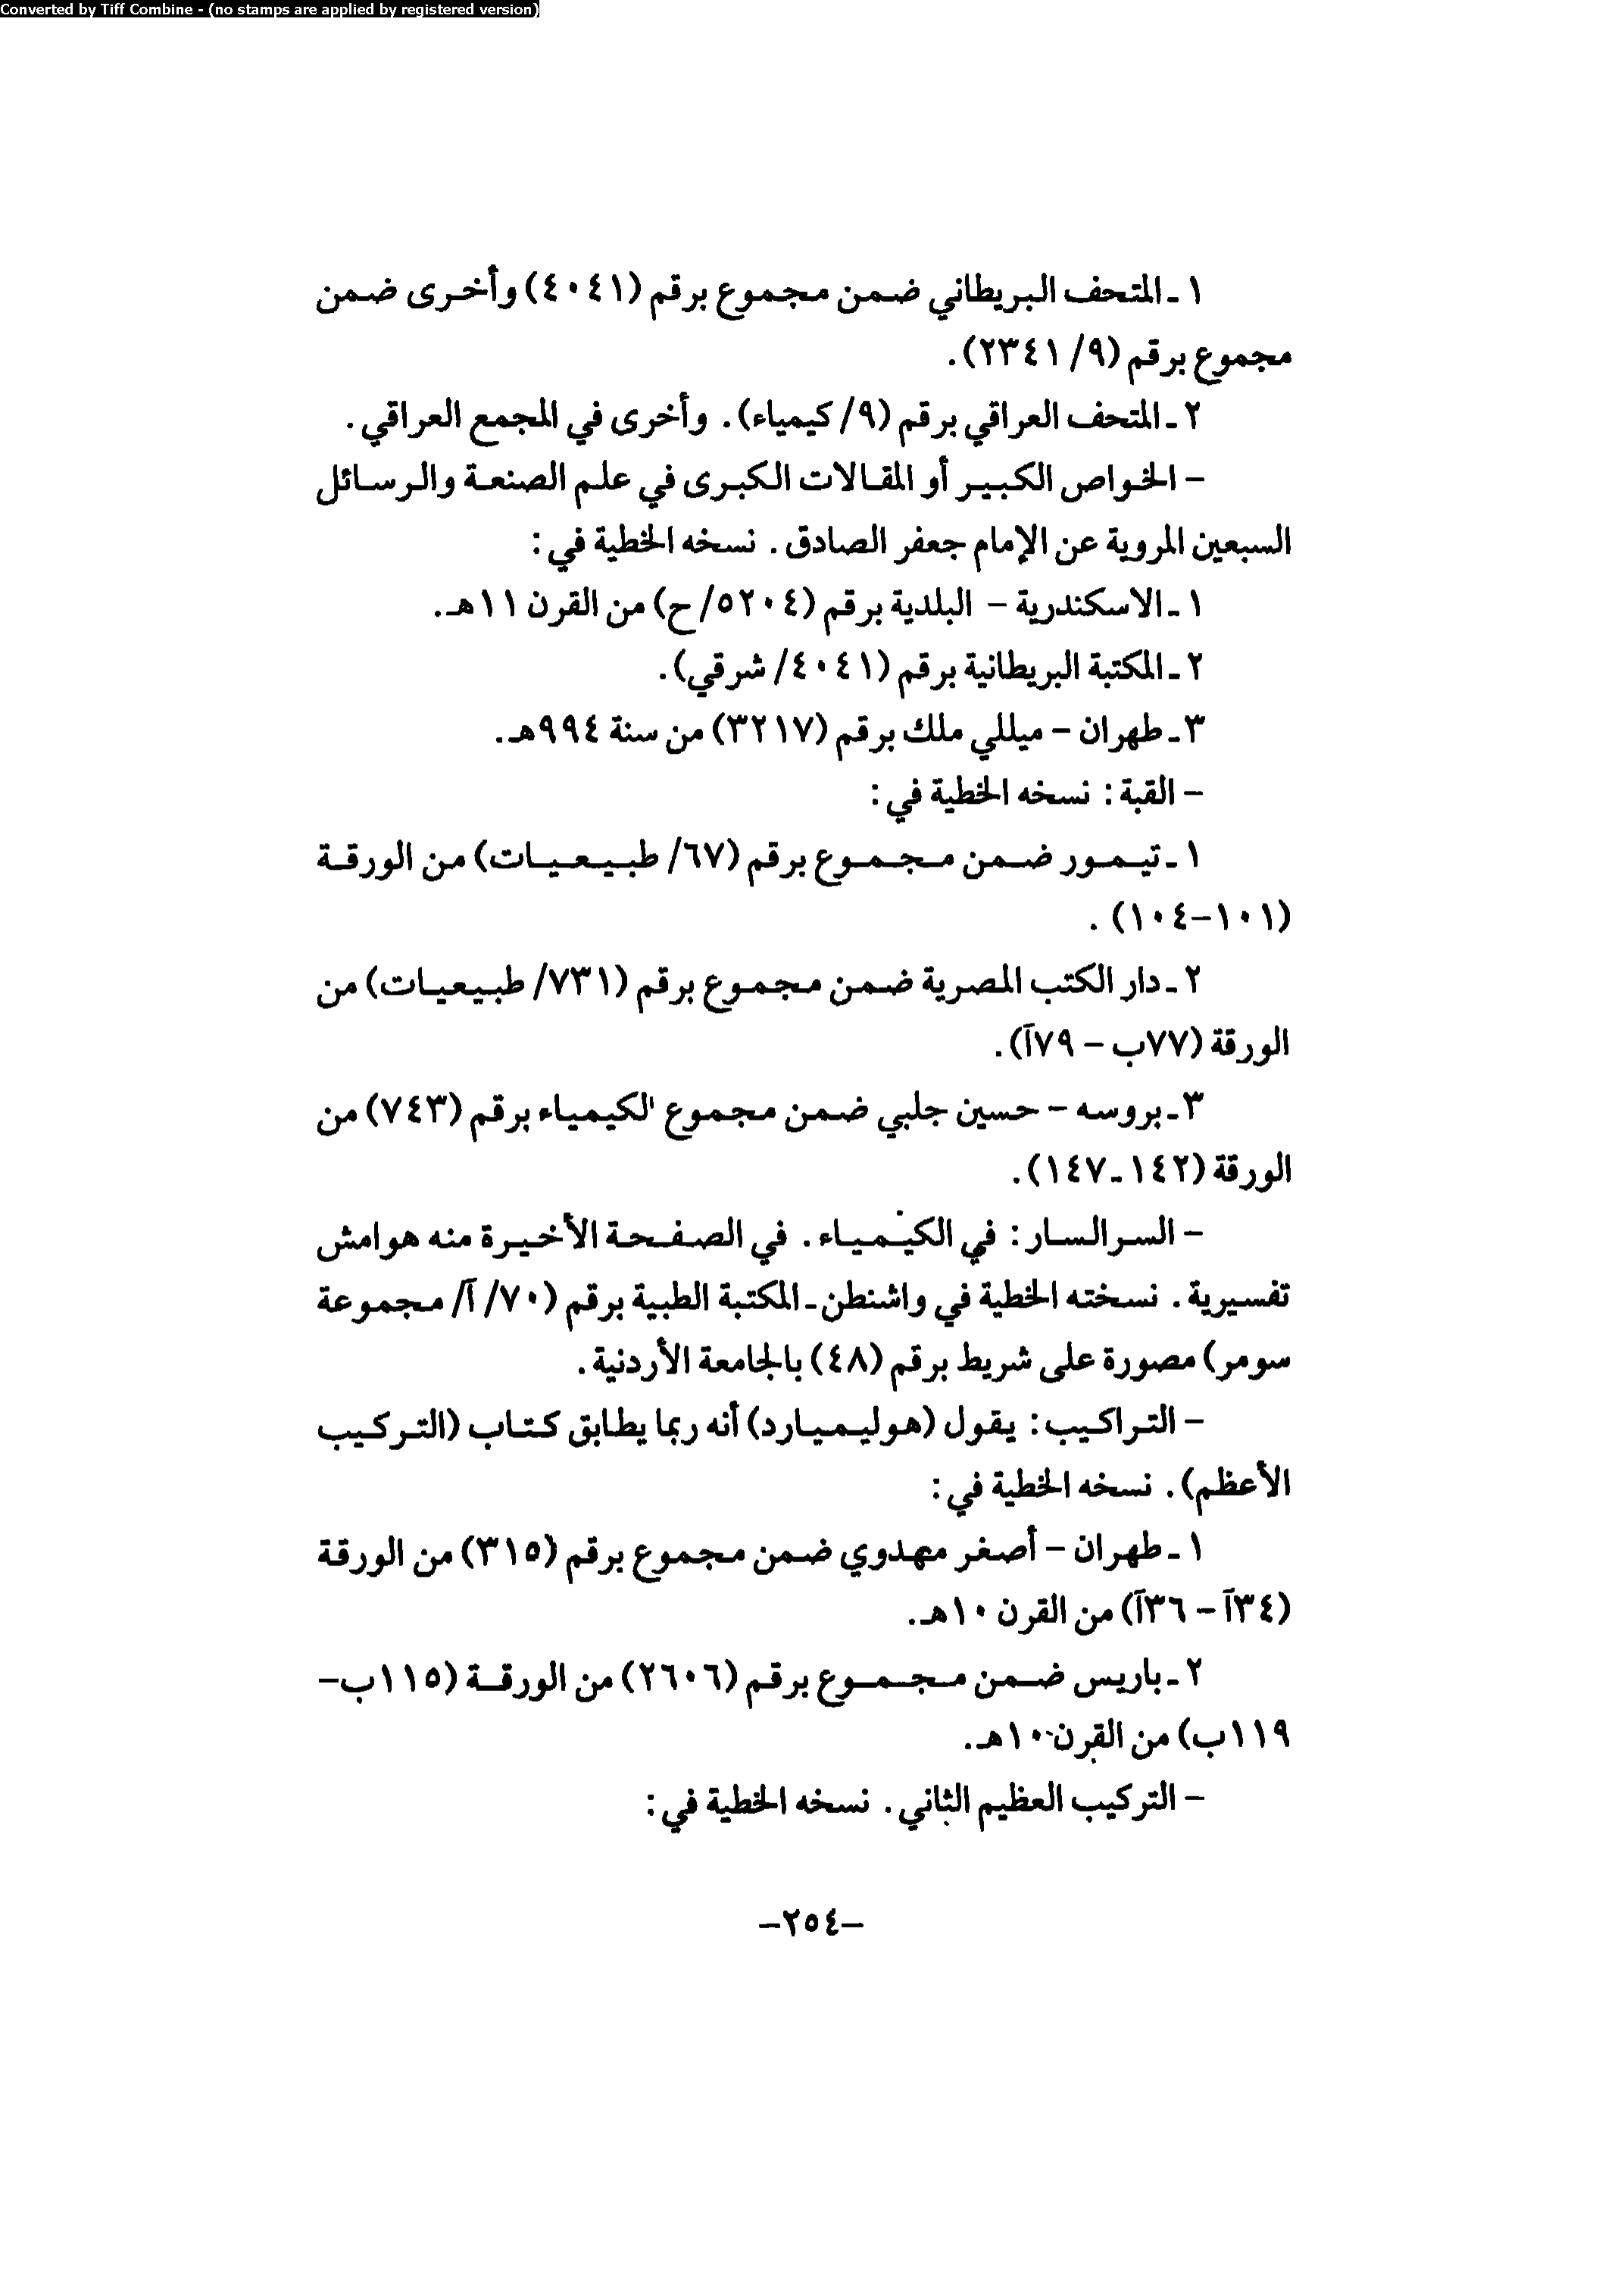 Converted by Tiff Combine - (no stamps are applied by registered version)
١ ـ المتحف البريطاني ضمن مجموع برقم (٤٠٤١) وأخرى ضمن
مجموع برقم (٩/ ٢٣٤١).
٢ ـ المتحف العراقي برقم (٩/ كيمياء). وأخرى في المجمع العراقي.
– الخواص الكبير أو المقالات الكبرى في علم الصنعة والرسائل
السبعين المروية عن الإمام جعفر الصادق. نسخه الخطية في:
١ ـ الاسكندرية – البلدية برقم (٥٢٠٤/ ح) من القرن ١١هـ.
٢ ـ المكتبة البريطانية برقم (٤٠٤١/ شرقي).
٣ ـ طهران – ميللي ملك برقم (٣٢١٧) من سنة ٩٩٤هـ.
– القبة: نسخه الخطية في:
١ ـ تيمور ضمن مجموع برقم (٦٧/ طبيعيات) من الورقة
(١٠١–١٠٤).
٢ ـ دار الكتب المصرية ضمن مجموع برقم (٧٣١/ طبيعيات) من
الورقة (٧٧ب – ٧٩آ).
٣ ـ بروسه – حسين جلبي ضمن مجموع الكيمياء برقم (٧٤٣) من
الورقة (١٤٢ـ١٤٧).
– السر السار: في الكيمياء. في الصفحة الأخيرة منه هوامش
تفسيرية. نسخته الخطية في واشنطن ـ المكتبة الطبية برقم (٧٠/ آ/ مجموعة
سومر) مصورة على شريط برقم (٤٨) بالجامعة الأردنية.
– التراكيب: يقول (هوليميارد) أنه ربما يطابق كتاب (التركيب
الأعظم). نسخه الخطية في:
١ ـ طهران – أصغر مهدوي ضمن مجموع برقم (٣١٥) من الورقة
(٣٤آ – ٣٦آ) من القرن ١٠هـ.
٢ ـ باريس ضمن مجموع برقم (٢٦٠٦) من الورقة (١١٥ب–
١١٩ب) من القرن ١٠هـ.
– التركيب العظيم الثاني. نسخه الخطية في:
–٢٥٤–